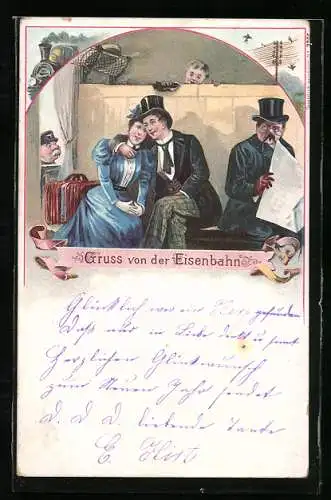 Gruss von der Eisenbahn
Glücklich wer ein Herz gefunden
Daß nur in Liebe denkt u sinnt
Herzlichen Glückwunsch
zum Neuen Jahr sendet
D. D. D. liebende Tante
E.